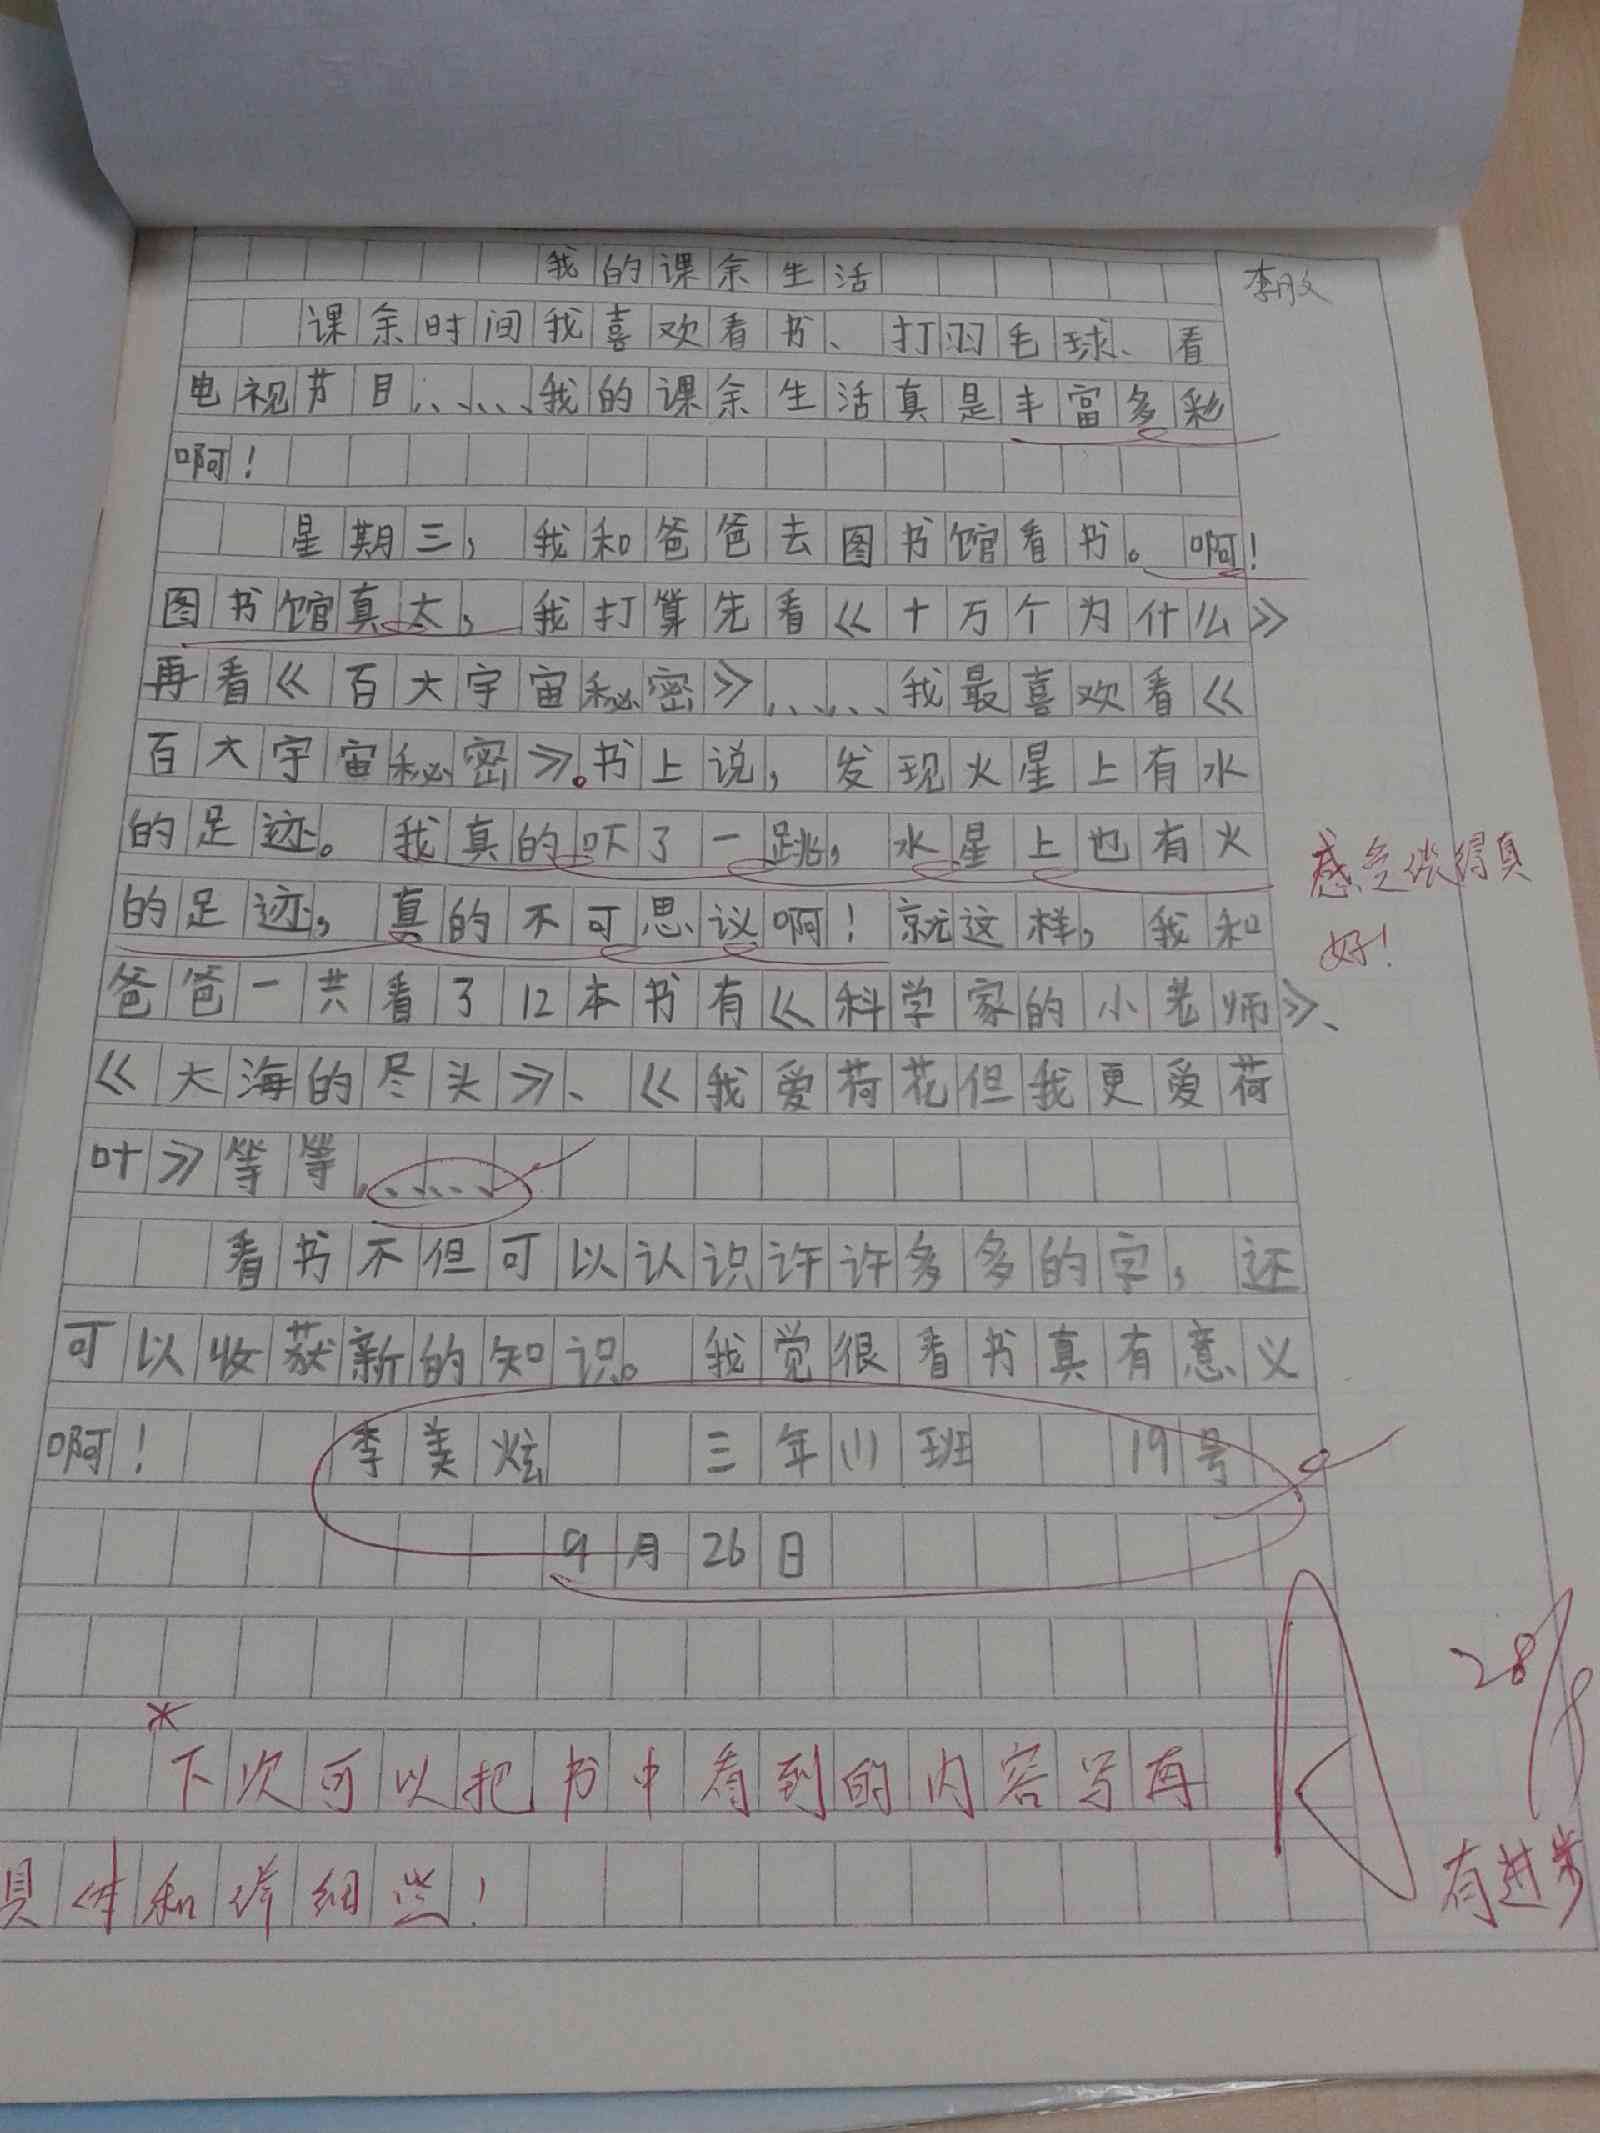 我的课余生活
课余时间我喜欢看书、打羽毛球、看
电视节目……我的课余生活真是丰富多彩
啊！
星期三，我和爸爸去图书馆看书。啊！
图书馆真大，我打算先看《十万个为什么》
再看《百大宇宙秘密》……我最喜欢看《
百大宇宙秘密》。书上说，发现火星上有水
的足迹。我真的吓了一跳，水星上也有火
的足迹，真的不可思议啊！就这样，我和
爸爸一共看了12本书有《科学家的小老师》、
《大海的尽头》、《我爱荷花但我更爱荷
叶》等等……
看书不但可以认识许许多多的字，还
可以收获新的知识。我觉很看书真有意义
啊！ 李美炫 三年(1)班 19号
9月26日
感受谈得真
好！
下次可以把书中看到的内容写再
具体和详细些！
A
28/9
有进步